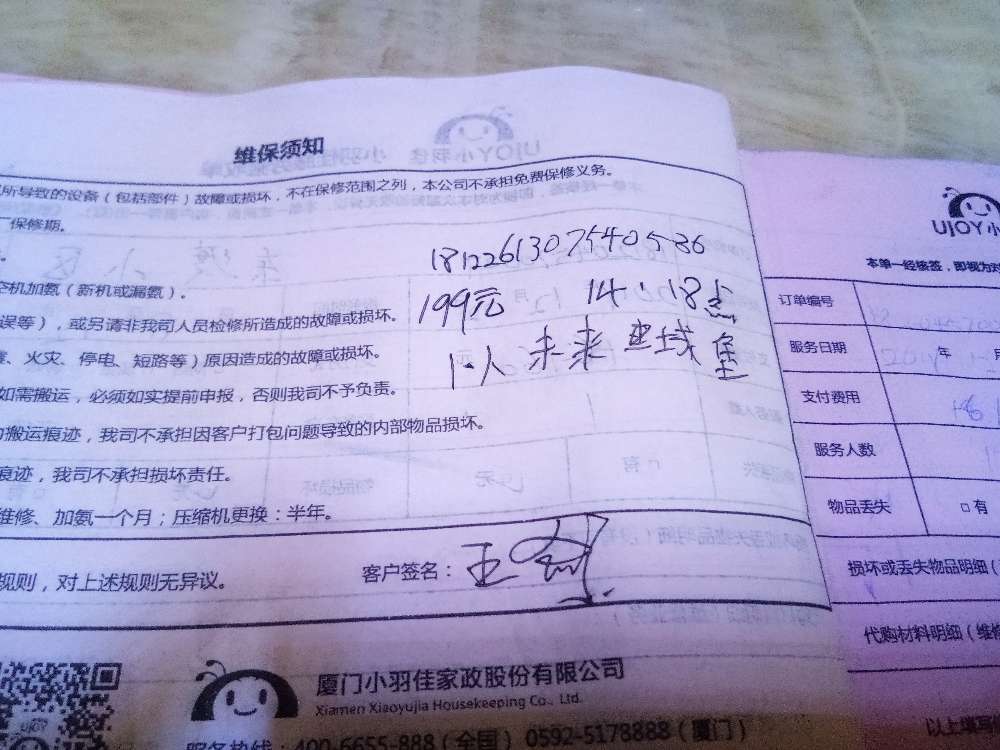 维保须知
所导致的设备（包括部件）故障或损坏，不在保修范围之列，本公司不承担免费保修义务。
保修期。
1812261307540536
空机加氨（新机或漏氨）。
199元 14:18点
误等），或另请非我司人员检修所造成的故障或损坏。
1人 未来 城堡
、火灾、停电、短路等）原因造成的故障或损坏。
如需搬运，必须如实提前申报，否则我司不予负责。
搬运痕迹，我司不承担因客户打包问题导致的内部物品损坏。
痕迹，我司不承担损坏责任。
维修、加氨一个月；压缩机更换：半年。
规则，对上述规则无异议。
客户签名：王
厦门小羽佳家政股份有限公司
Xiamen Xiaoyujia Housekeeping Co., Ltd.
服务热线：400-6655-888（全国） 0592-5178888（厦门）
UJOY小
本单一经核签，即视为对
订单编号
服务日期 年 月
支付费用
服务人数
物品丢失 □有
损坏或丢失物品明细（
代购材料明细（维修
以上填写